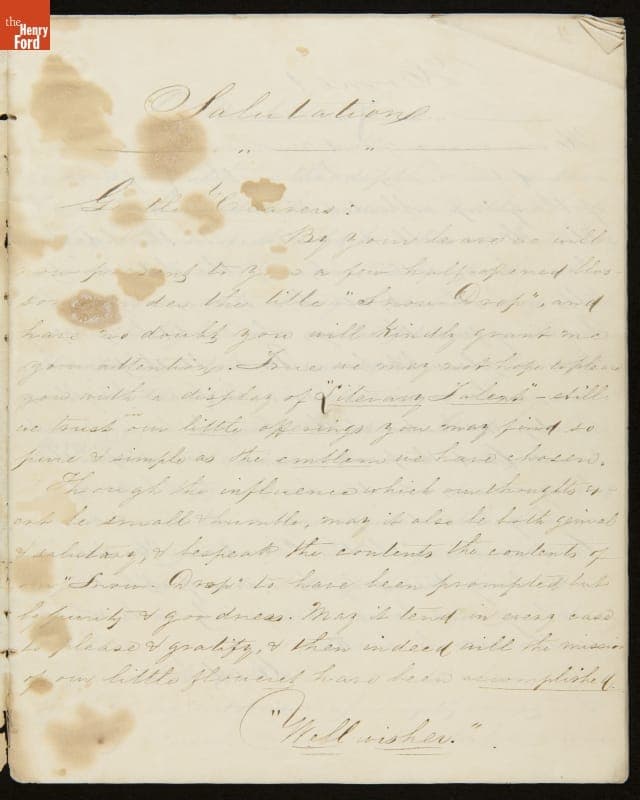 the
Henry
Ford
Salutation
" "
Gentle Hearers:
By your leave we will
now present to you a few half opened blos-
der the title "Snow Drop", and
have no doubt you will kindly grant me
your attention. True we may not hope to please
you with a display of "Literary Talent" - still
we trust our little offerings you may find so
pure & simple as the emblem we have chosen.
Though the influence which our thoughts
be small & humble, may it also be both genial
& salutary, & bespeak the contents the contents of
"Snow Drop" to have been prompted but
by purity & goodness. May it tend in every case
to please & gratify, & then indeed will the mission
of our little floweret have been accomplished.
"Well wisher."